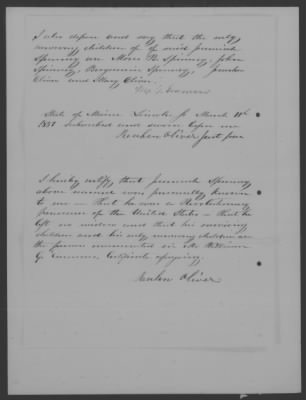 I also depose and say that the only
surviving children of said Jeremiah
Spinney are Moses Spinney, John
Spinney, Benjamin Spinney,
Oliver and Mary Oliver.
State of Maine Lincoln ss March 11th
1851 Subscribed and sworn before me
Reuben Oliver Just peace
I hereby certify that Jeremiah Spinney
above named was personally known
to me – that he was a Revolutionary
Pensioner of the United States – that he
left no widow and that his surviving
children and his only surviving children are
the persons enumerated in
G. Certificate
Reuben Oliver